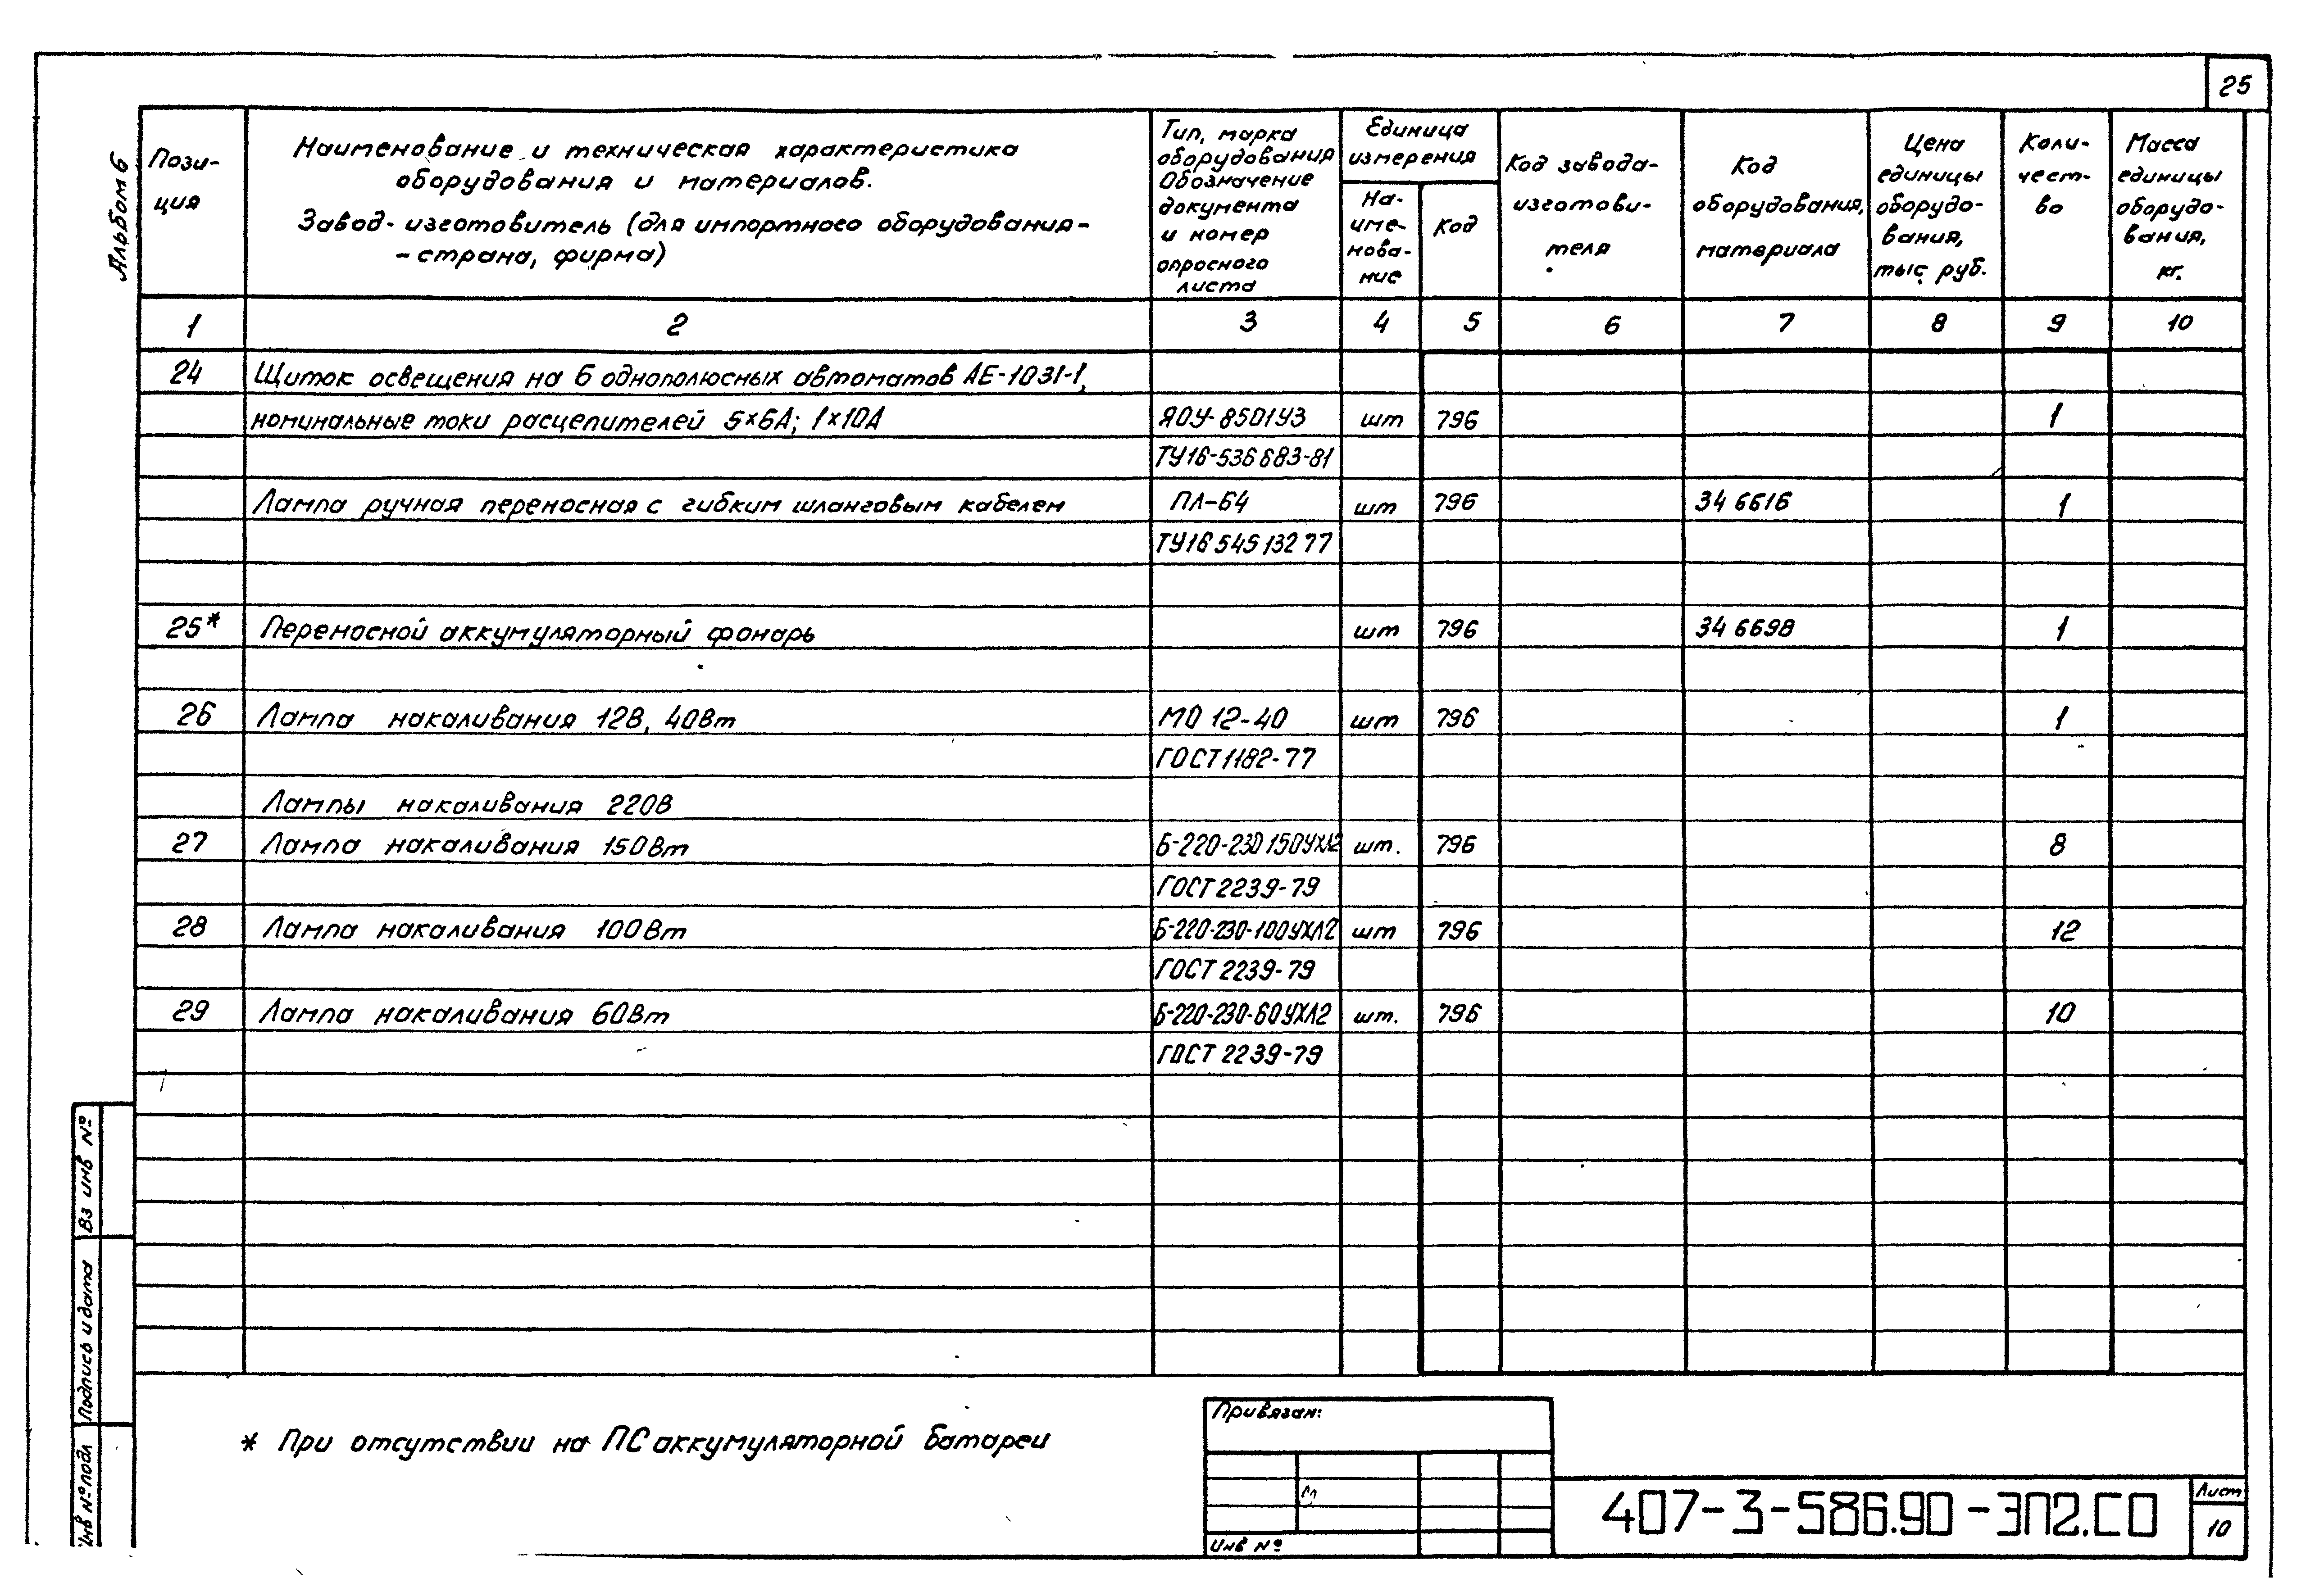 25
Альбом 6
Пози-
ция
Наименование и техническая характеристика
оборудования и материалов.
Завод-изготовитель (для импортного оборудования-
-страна, фирма)
Тип, марка
оборудования
Обозначение
документа
и номер
опросного
листа
Единица
измерения
На-
име-
нова-
ние
Код
Код завода-
изготови-
теля
Код
оборудования,
материала
Цена
единицы
оборудо-
вания,
тыс руб.
Коли-
чест-
во
Масса
единицы
оборудо-
вания,
кг.
1 2 3 4 5 6 7 8 9 10
24 Щиток освещения на 6 однополюсных автоматов АЕ-1031-1,
номинальные токи расцепителей 5×6А; 1×10А ЯОУ-8501У3 шт 796 1
ТУ16-536 683-81
Лампа ручная переносная с гибким шланговым кабелем ПЛ-64 шт 796 34 6616 1
ТУ16 545 132 77
25* Переносной аккумуляторный фонарь шт 796 34 6698 1
26 Лампа накаливания 12В, 40Вт МО 12-40 шт 796 1
ГОСТ 1182-77
Лампы накаливания 220В
27 Лампа накаливания 150Вт Б-220-230 150УХЛ2 шт. 796 8
ГОСТ 2239-79
28 Лампа накаливания 100Вт Б-220-230-100УХЛ2 шт 796 12
ГОСТ 2239-79
29 Лампа накаливания 60Вт Б-220-230-60УХЛ2 шт. 796 10
ГОСТ 2239-79
* При отсутствии на ПС аккумуляторной батареи
Привязан:
Инв №
407-3-586.90-ЭП2.СО
Лист
10
Вз инв №
Подпись и дата
Инв № подл